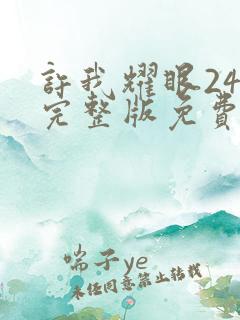 許我耀眼24
完整版免費
喘子ye
未任同意禁止转载